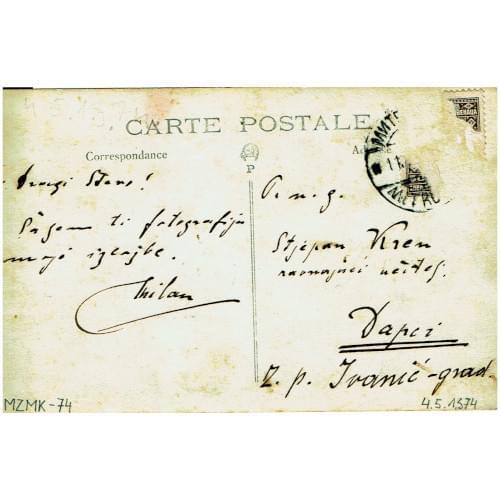 4.5.19
CARTE POSTALE
Correspondance
P
МИТР
MITRO
Dragi Stevo!
Šaljem ti fotografiju
moje izložbe.
Milan
P. n. g.
Stjepan Kren
ravnajući učitelj
Dapci
Z. p. Ivanić-grad
MZMK-74
4.5.1974